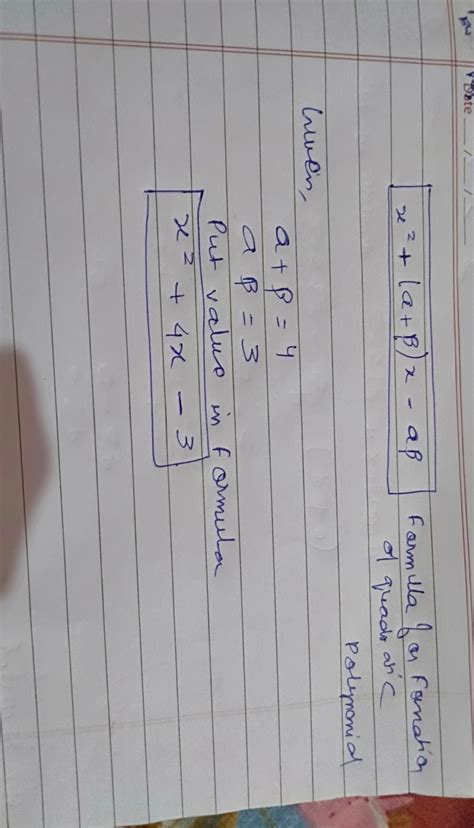 Date
x² + (α+β)x - αβ Formula for Formation
of quadratic
Polynomial
Given,
α+β = 4
αβ = 3
Put value in formula
x² + 4x - 3